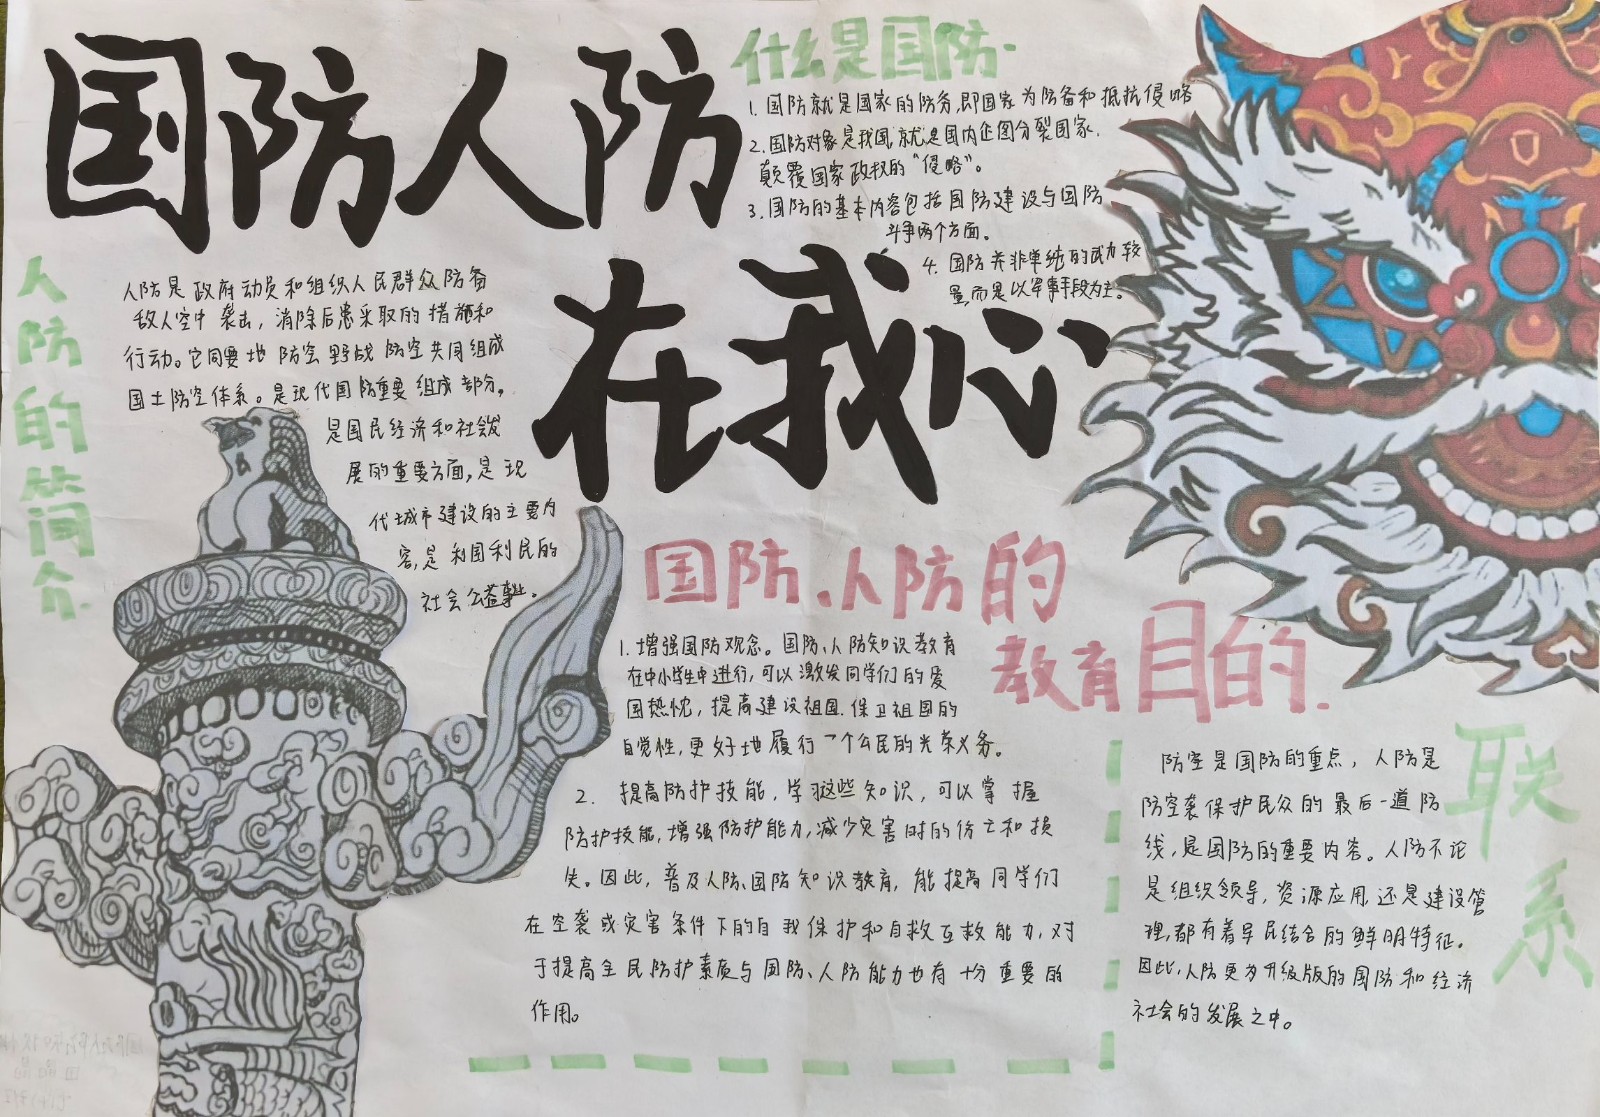 国防人防
在我心
什么是国防
1. 国防就是国家的防务,即国家为防备和抵抗侵略
2. 国防对象是我国,就是国内企图分裂国家.
颠覆国家政权的“侵略”。
3. 国防的基本内容包括国防建设与国防
斗争两个方面。
4. 国防并非单纯的武力较
量,而是以军事手段为主。
人防的简介
人防是政府动员和组织人民群众防备
敌人空中袭击,消除后患采取的措施和
行动。它同要地防空野战防空共同组成
国土防空体系。是现代国防重要组成部分,
是国民经济和社会发
展的重要方面,是现
代城市建设的主要内
容,是利国利民的
社会公益事业。
国防、人防的
教育目的.
1. 增强国防观念。国防、人防知识教育
在中小学生中进行,可以激发同学们的爱
国热忱,提高建设祖国.保卫祖国的
自觉性,更好地履行一个公民的光荣义务。
2. 提高防护技能,学习这些知识,可以掌握
防护技能,增强防护能力,减少灾害时的伤亡和损
失。因此,普及人防、国防知识教育,能提高同学们
在空袭或灾害条件下的自我保护和自救互救能力,对
于提高全民防护素质与国防、人防能力也有十分重要的
作用。
联系
防空是国防的重点,人防是
防空袭保护民众的最后一道防
线,是国防的重要内容。人防不论
是组织领导,资源应用,还是建设管
理,都有着军民结合的鲜明特征。
因此,人防更为升级版的国防和经济
社会的发展之中。